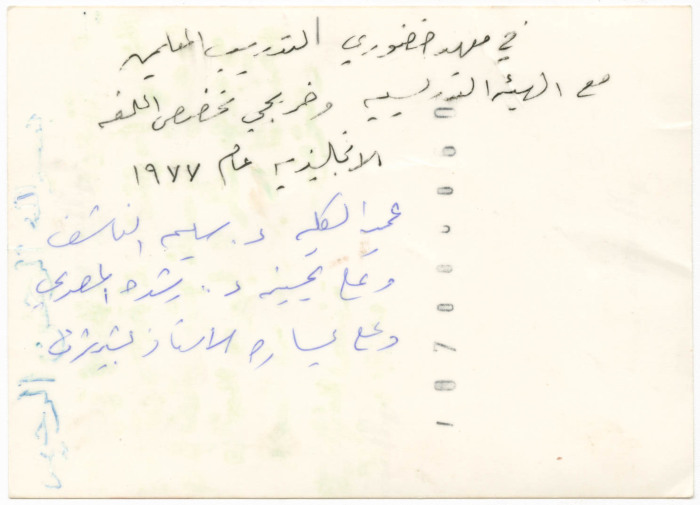 في معهد خضوري التدريب المعلمين
مع الهيئة التدريسيه وخريجي تخصص اللغه
الانجليزيه عام ١٩٧٧
عميد الكليه د. سليم الناشف
وعلى يمينه د. رشده المصري
وعلى يساره الاستاذ
بسم الله الرحمن الرحيم